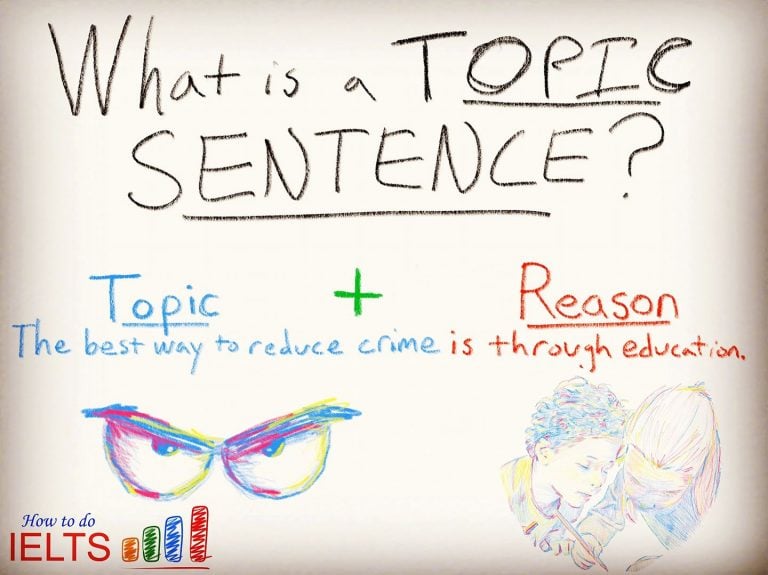 What is a TOPIC
SENTENCE?
Topic + Reason
The best way to reduce crime is through education.
How to do
IELTS